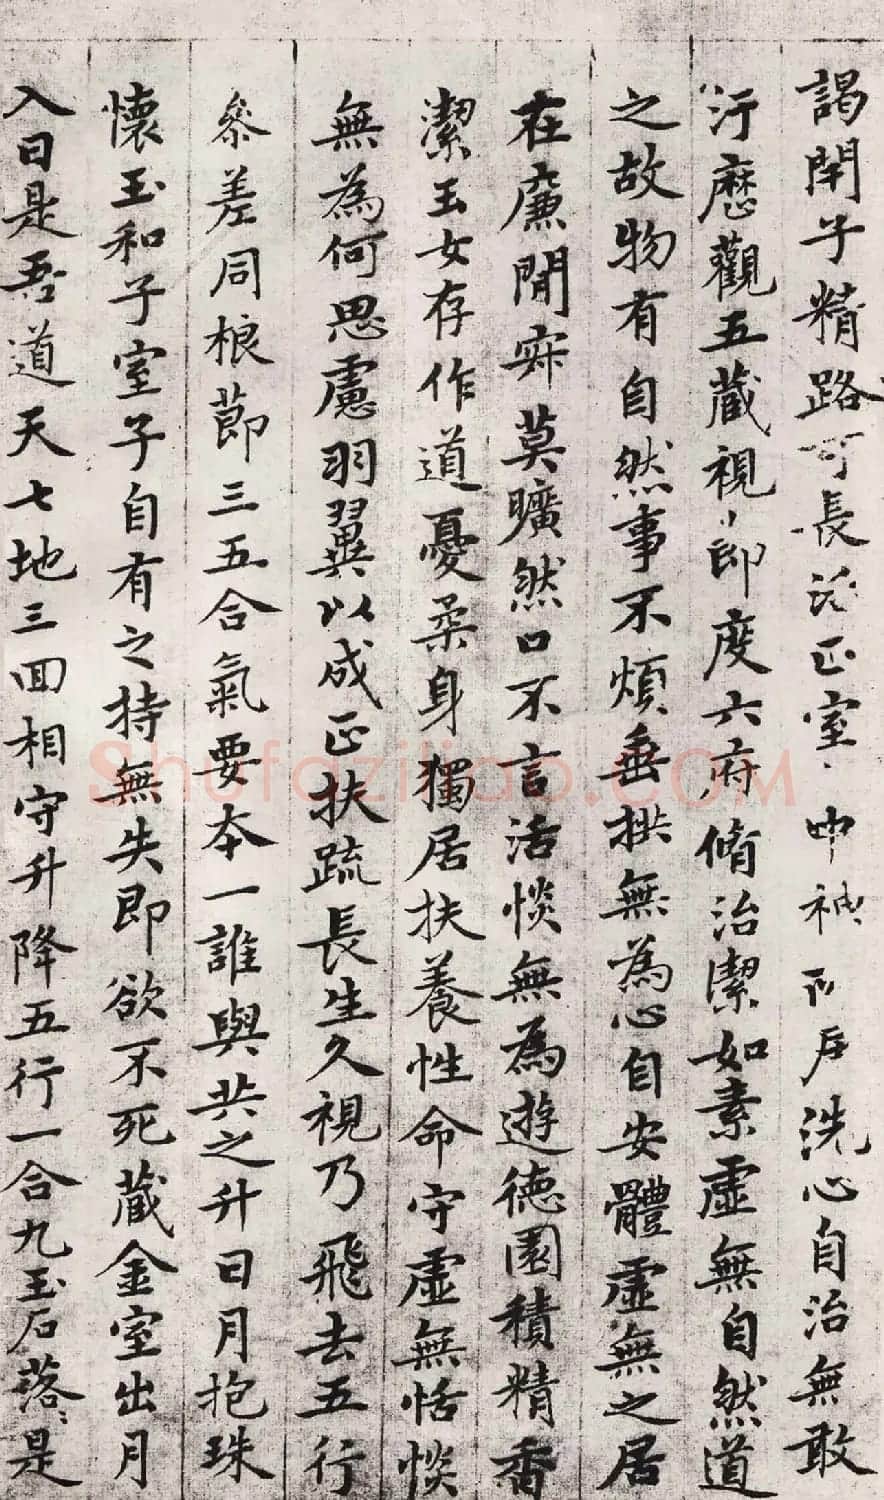 謁閇子精路可長活正室中神所居洗心自治無敢
汙歷觀五藏視節度六府脩治潔如素虛無自然道
之故物有自然事不煩垂拱無為心自安體虛無之居
在廉間寂莫曠然口不言活惔無為遊德園積精香
潔玉女存作道憂柔身獨居扶養性命守虛無恬惔
無為何思慮羽翼以成正扶疏長生久視乃飛去五行
參差同根節三五合氣要本一誰與共之升日月抱珠
懷玉和子室子自有之持無失即欲不死藏金室出月
入日是吾道天七地三回相守升降五行一合九玉石落〻是
Shufaziliao.com